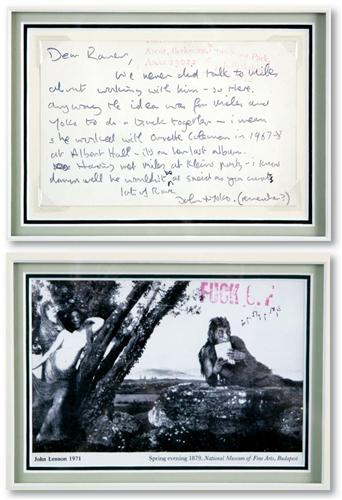 Dear Raner,
We never did talk to Miles
about working with him - so Here.
anyway the idea was for Miles and
Yoko to do a track together - i mean
she worked with Ornette Coleman in 1967-8
at Albert Hall - its on her last album.
Having met miles at Kleins party - i knew
damn well he wouldn't be as snotty as you
lots of love
John + Yoko. (remember?)
FUCK
John Lennon 1971
Spring evening 1879, National Museum of Fine Arts, Budapest